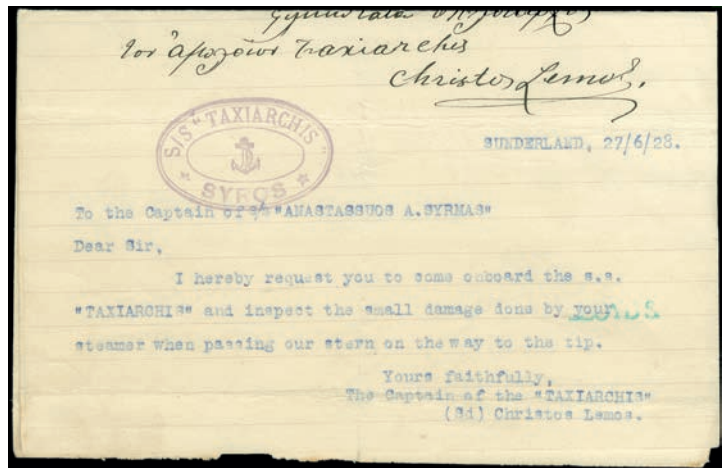 Christos Lemos.
S/S "TAXIARCHIS"
SYROS
SUNDERLAND, 27/6/28.
To the Captain of s/s "ANASTASSUOS A.SYRMAS"
Dear Sir,
I hereby request you to come onboard the s.s.
"TAXIARCHIS" and inspect the small damage done by your
steamer when passing our stern on the way to the tip.
Yours faithfully,
The Captain of the "TAXIARCHIS"
(Sd) Christos Lemos.